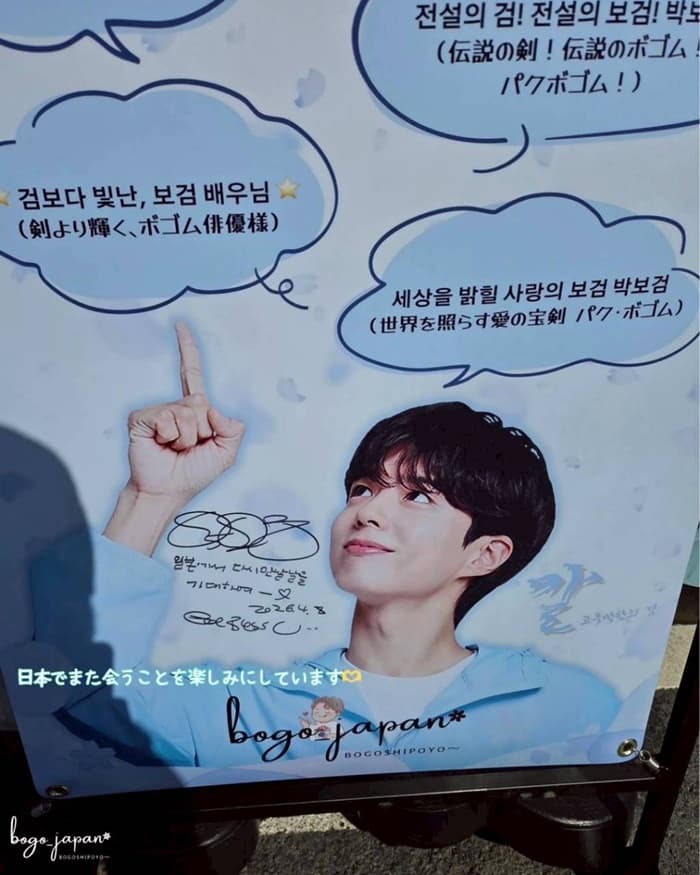 전설의 검! 전설의 보검! 박보
(伝説の剣！伝説のボゴム！
パクボゴム！)
검보다 빛난, 보검 배우님
(剣より輝く、ボゴム俳優様)
세상을 밝힐 사랑의 보검 박보검
(世界を照らす愛の宝剣 パク・ボゴム)
일본에서 다시 만날 날을
기대하며
2026.4.8
God Bless U
칼
고두막한의 검
日本でまた会うことを楽しみにしています
bogo_japan*
BOGOSHIPOYO〜
bogo_japan*
BOGOSHIPOYO〜